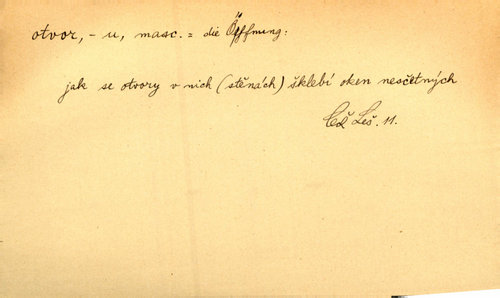 otvor, - u, masc. = die Öffnung:
jak se otvory v nich (stěnách) šklebí oken nesčetných
Leš. 11.